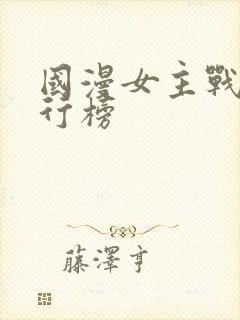 國漫女主戰
行榜
藤澤亨